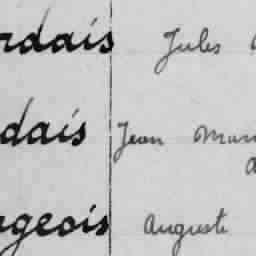 rdais Jules
dais Jean
geois Auguste